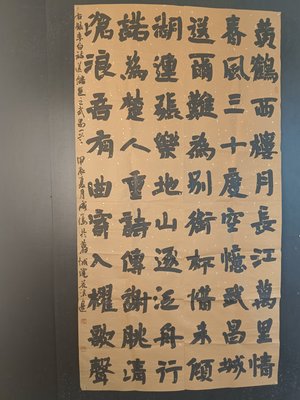 黃鶴西樓月長江萬里情
春風三十度空憶武昌城
送爾難為別銜杯惜未傾
湖連張樂地山逐泛舟行
諾為楚人重詩傳謝朓清
滄浪吾有曲寄入櫂歌聲
李白詩送儲邕之武昌 甲辰夏月